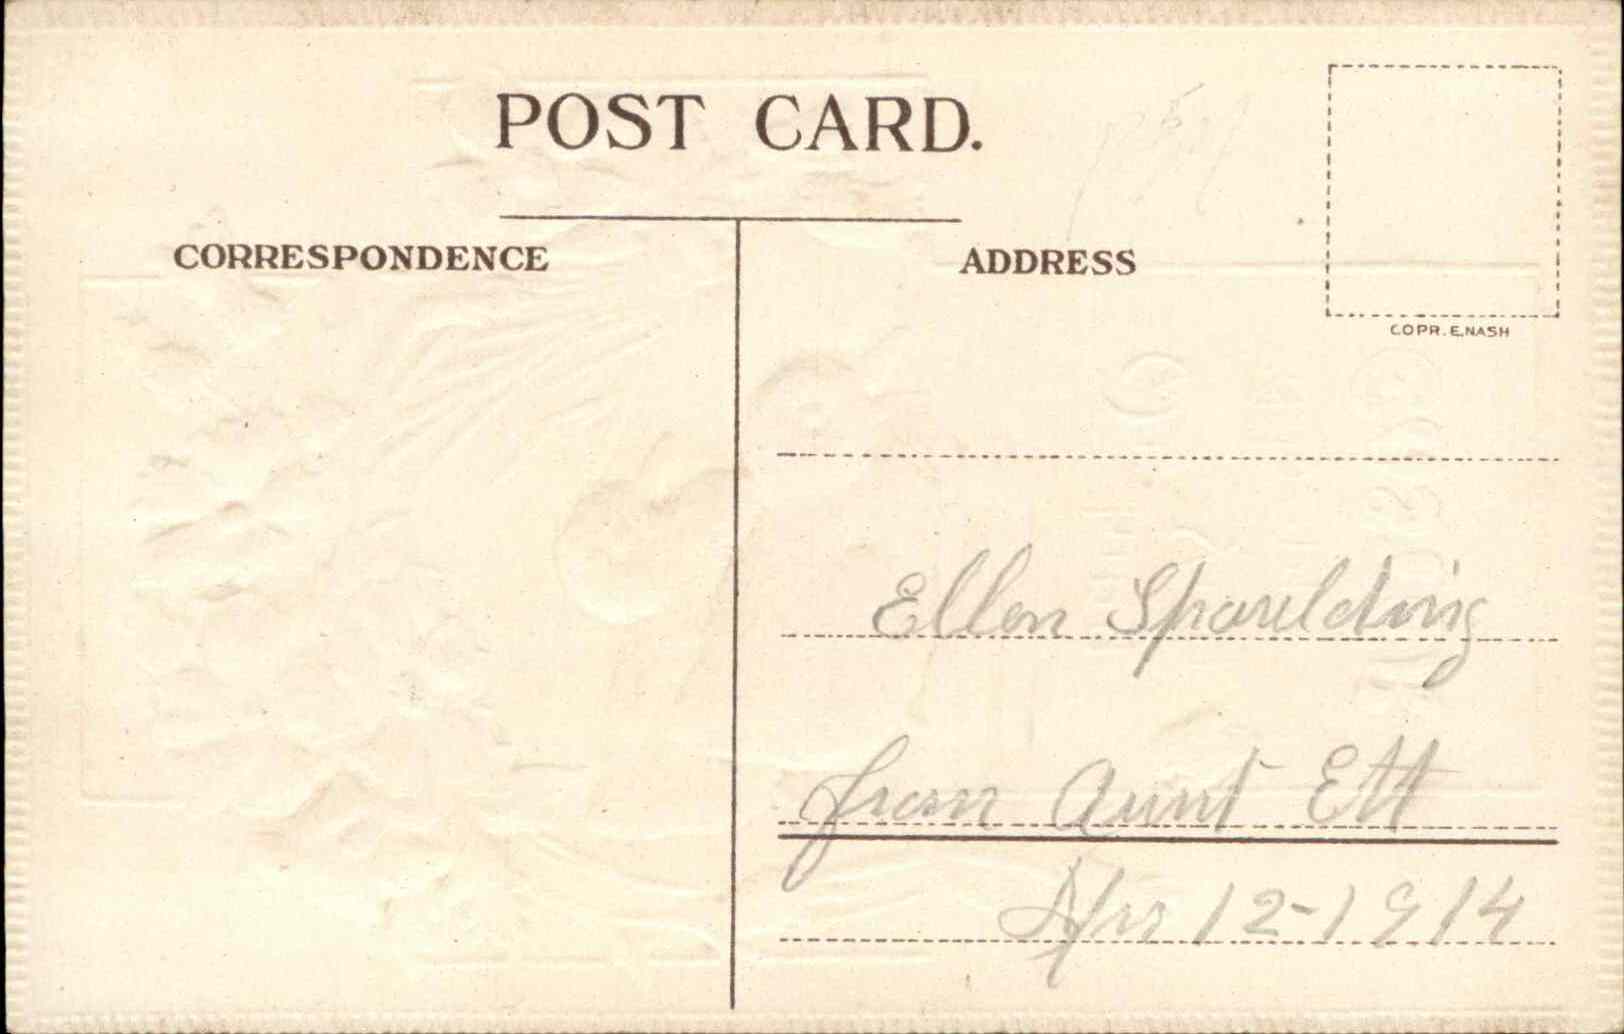 POST CARD.
CORRESPONDENCE
ADDRESS
COPR. E. NASH
Ellen Spaulding
from Aunt Ett
Apr 12-1914